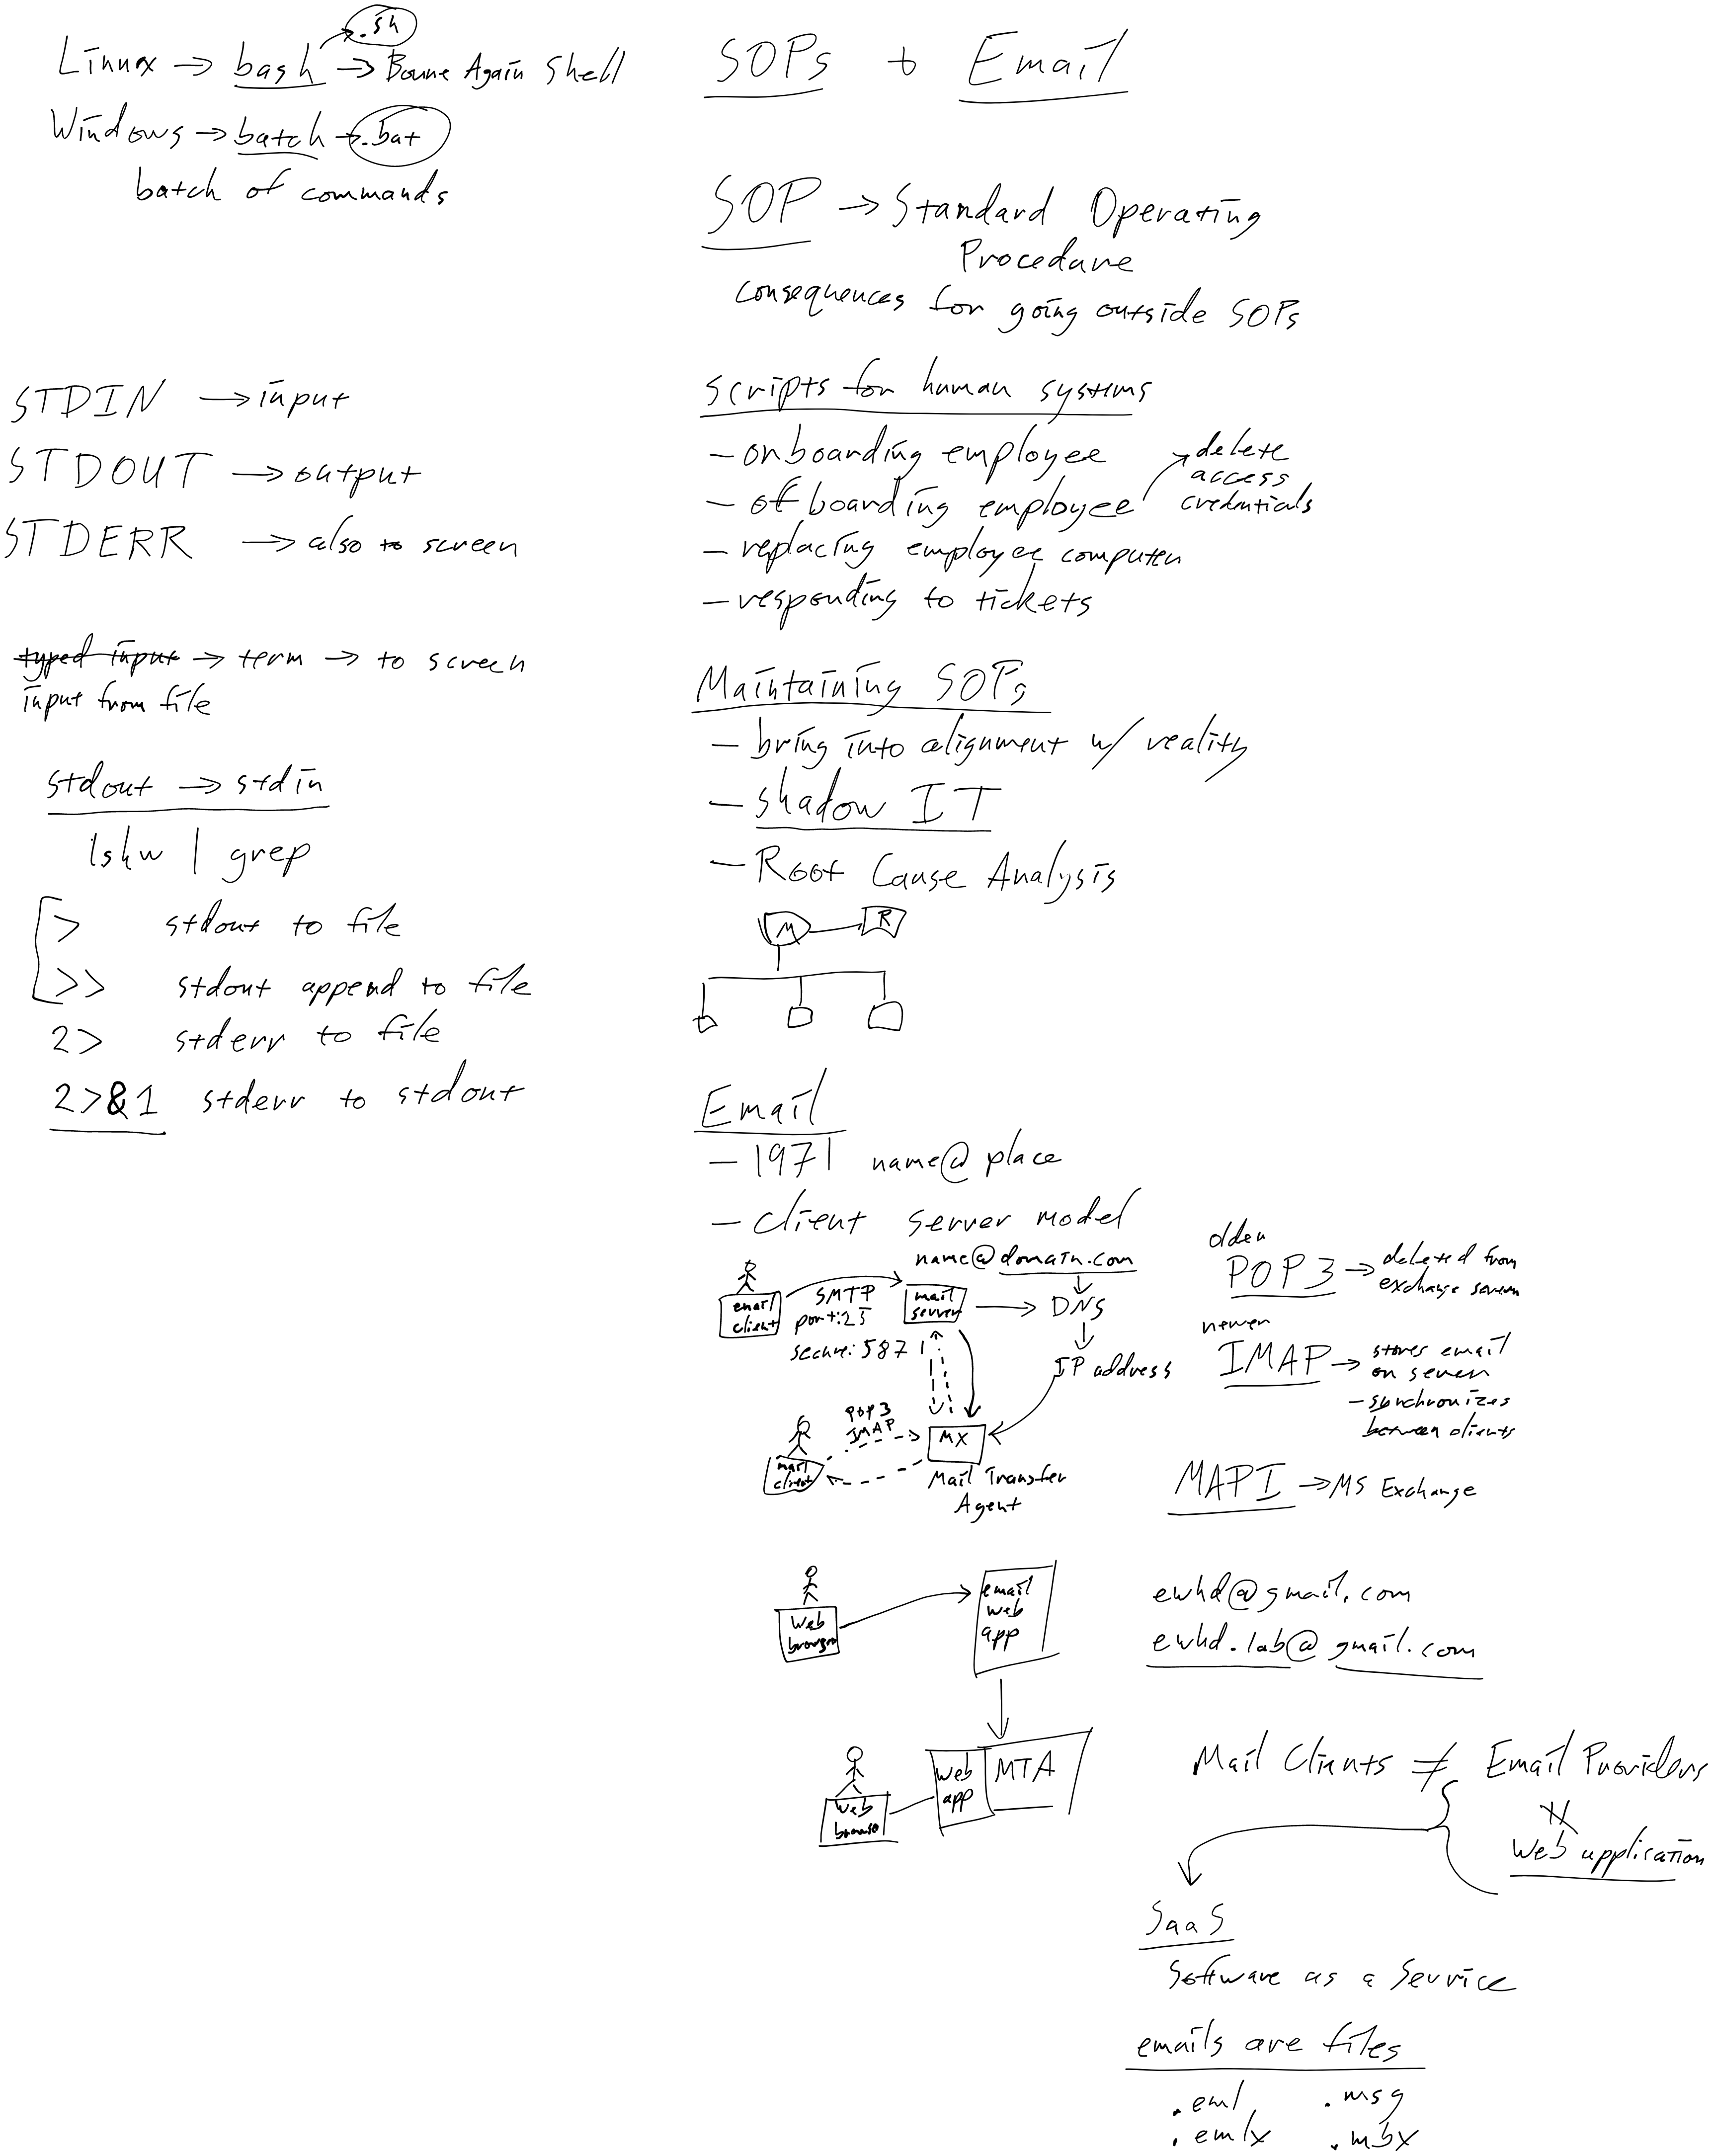 .sh
Linux → bash → Bourne Again Shell
Windows → batch → .bat
batch of commands
STDIN → input
STDOUT → output
STDERR → also to screen
typed input → term → to screen
input from file
stdout → stdin
lshw | grep
> stdout to file
>> stdout append to file
2> stderr to file
2>&1 stderr to stdout
SOPs + Email
SOP → Standard Operating
Procedure
consequences for going outside SOPs
scripts for human systems
- onboarding employee
- ofboarding employee
delete
access
credentials
- replacing employee computer
- responding to tickets
Maintaining SOPs
- bring into alignment w/ reality
- shadow IT
- Root Cause Analysis
M R
Email
- 1971 name@place
- client server model
name@domain.com
email
client
SMTP
port:25
secure: 587
mail
server
→ DNS
IP address
POP3
IMAP
mail
client
MX
Mail Transfer
Agent
older
POP3 → deleted from
exchange server
newer
IMAP → stores email
on server
- synchronizes
between clients
MAPI → MS Exchange
web
browser
email
web
app
ewhd@gmail.com
ewhd.lab@gmail.com
web
browse
web
app
MTA
Mail Clients ≠ Email Providers
web application
SaaS
Software as a Service
emails are files
.eml .msg
.emlx .mbx